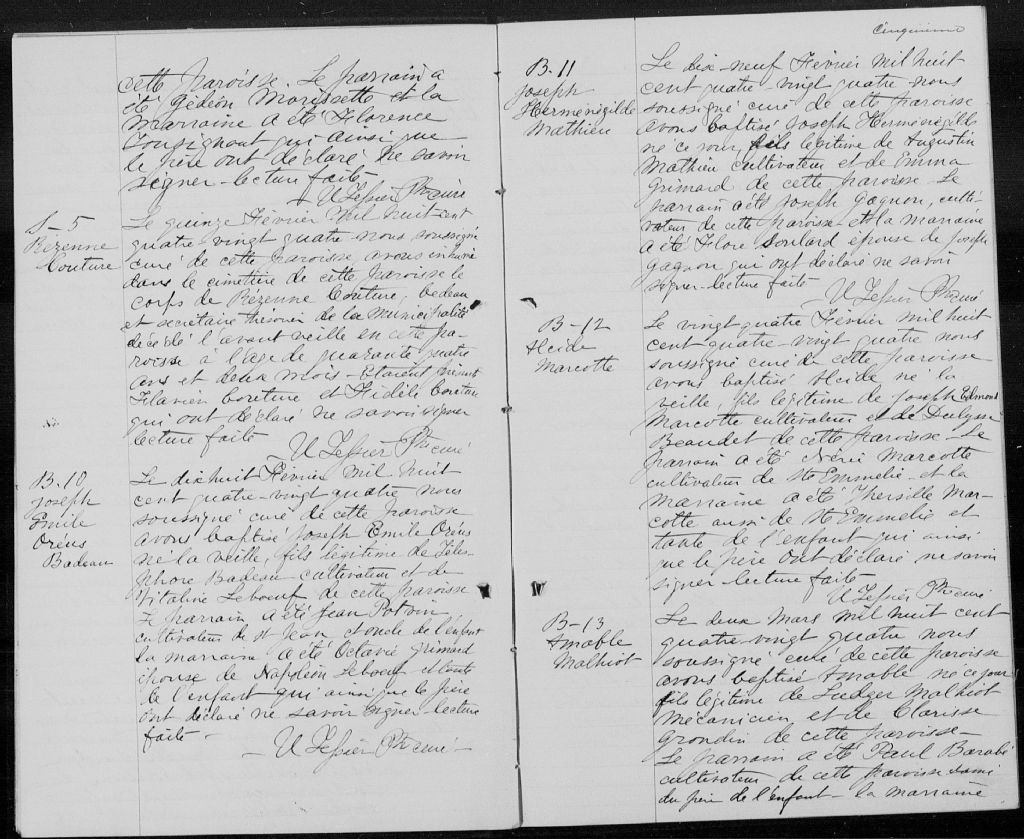 cette paroisse. Le parrain a
été Gédéon Morissette et la
Marraine a été Florence
qui ainsi que
le père ont déclaré ne savoir
signer - lecture faite -
U Tessier Ptre curé
S-5
Rézenne
Couture
Le quinze Février Mil huit cent
quatre vingt quatre nous soussigné
curé de cette paroisse, avons inhumé
dans le cimetière de cette paroisse le
corps de Rézenne Couture, bedeau
et secrétaire trésorier de la Municipalité
décédé l'avant veille en cette pa-
roisse à l'âge de quarante quatre
ans et deux mois - Etaient présent
Flavien Couture et Fidèle Couture
qui ont déclaré ne savoir signer
lecture faite -
U Tessier Ptre curé
B-10
Joseph
Emile
Oréus
Badeau
Le dix huit Février mil huit
cent quatre-vingt quatre nous
soussigné curé de cette paroisse
avons baptisé Joseph Emile Oréus
né la veille, fils légitime de Téles-
phore Badeau cultivateur et de
Vitaline Leboeuf de cette paroisse
Le parrain a été Jean Potvin
cultivateur de St Jean et oncle de l'enfant
la marraine a été Octavie Grimard
épouse de Napoléon Leboeuf et tante
de l'enfant qui ainsi que le père
ont déclaré ne savoir signer lecture
faite -
- U Tessier Ptre curé -
Cinquième
B-11
Joseph
Herménégilde
Mathieu
Le dix-neuf Février Mil huit
cent quatre-vingt quatre nous
soussigné curé de cette paroisse
avons baptisé Joseph Herménégilde
né ce jour fils légitime de Augustin
Mathieu cultivateur et de Emma
Grimard de cette paroisse - Le
parrain a été Joseph Gagnon, culti-
vateur de cette paroisse et la marraine
a été Flore Soulard épouse de Joseph
Gagnon qui ont déclaré ne savoir
signer - lecture faite -
U Tessier Ptre curé
B-12
Alcide
Marcotte
Le vingt quatre Février mil huit
cent quatre-vingt quatre nous
soussigné curé de cette paroisse
avons baptisé Alcide né la
veille, fils légitime de Joseph Edmond
Marcotte cultivateur et de
Beaudet de cette paroisse - Le
parrain a été Nérée Marcotte
cultivateur de Ste Emmélie - et la
marraine a été Thersille Mar-
cotte aussi de Ste Emmélie et
tante de l'enfant qui ainsi
que le père ont déclaré ne savoir
signer - lecture faite -
U Tessier Ptre curé
B-13
Amable
Malhiot
Le deux Mars mil huit cent
quatre vingt quatre nous
soussigné curé de cette paroisse
avons baptisé Amable né ce jour
fils légitime de Ludger Malhiot
Mécanicien, et de Clarisse
Grondin de cette paroisse -
Le parrain a été Paul Barabé
cultivateur de cette paroisse
du père de l'enfant - la marraine